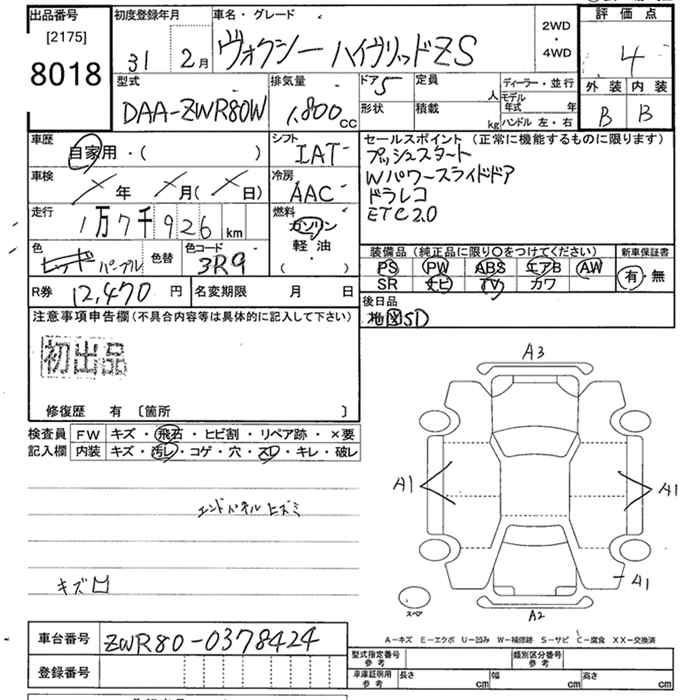 出品番号
[2175]
8018
初度登録年月
31 2月
車名・グレード
ヴォクシー ハイヴリッドZS
2WD
・
4WD
評価点
4
外装 内装
B B
型式
DAA-ZWR80W
排気量
1,800 CC
ドア 5
定員 人
形状
積載 kg
ディーラー・並行
モデル年式 年
ハンドル 左・右
車歴
自家用・( )
シフト
IAT
車検
年 月(日)
冷房
AAC
走行
1万7千926 km
燃料
ガソリン
軽油
( )
色
レッド パープル
色替
色コード
3R9
R券 12,470 円
名変期限 月 日
セールスポイント (正常に機能するものに限ります)
プッシュスタート
Wパワースライドドア
ドラレコ
ETC2.0
装備品 (純正品に限り〇をつけてください)
PS PW ABS エアB AW
SR ナビ TV カワ
新車保証書
有・無
後日品
地図SD
注意事項申告欄 (不具合内容等は具体的に記入して下さい)
初出品
修復歴 有 〔箇所 〕
検査員
記入欄
FW キズ・飛石・ヒビ割・リペア跡・×要
内装 キズ・汚レ・コゲ・穴・スレ・キレ・破レ
エンドパネルヒズミ
キズ
A3
A1
A1
A1
A2
スペア
A-キズ E-エクボ U-凹み W-補修跡 S-サビ C-腐食 XX-交換済
車台番号 ZWR80-0378424
登録番号
型式指定番号
参考
類別区分番号
参考
車庫証明用
参考
長さ cm
幅 cm
高さ cm